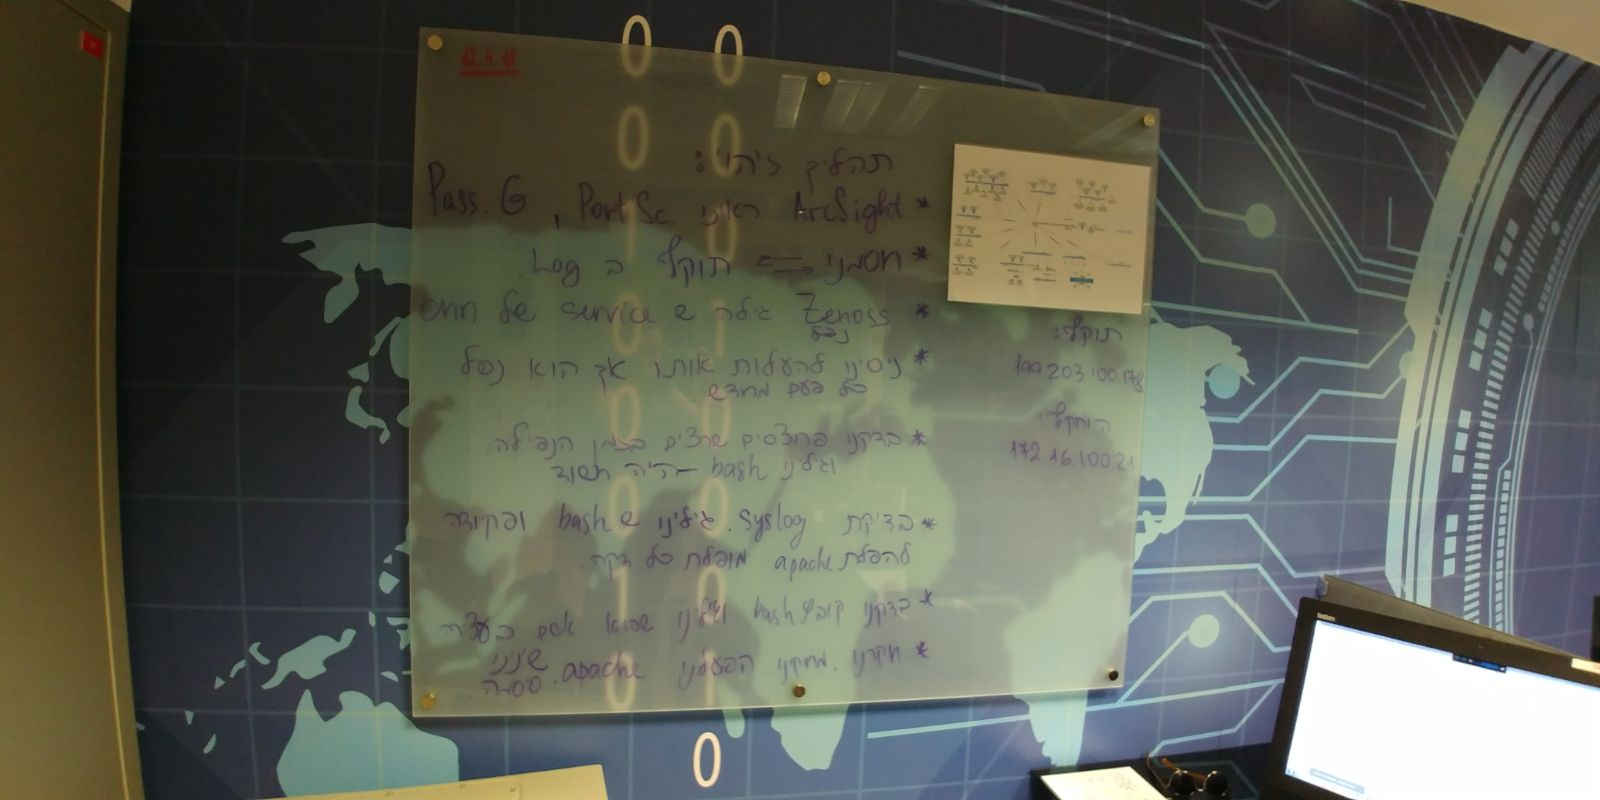 תהליך זיהוי:
* ArcSight ראינו Port Sc. , Pass. G
* חסמנו תוקף ב Log
* Zenoss גילה ש service של cnn
נפל
* ניסינו להעלות אותו אך הוא נפל
כל פעם מחדש.
* בדקנו פרוצסים שרצים בזמן הנפילה
וגילינו bash – היה חשוד
* בדיקת syslog. גילינו ש bash ופקודה
להפלת apache מופלת כל דקה.
* בדקנו קובץ bash וגילינו שהוא אשם בעצירה
* חקרנו. מחקנו. הפעלנו apache. שינינו
סיסמה.
תוקף:
199.203.100.178
הותקף:
172.16.100.21